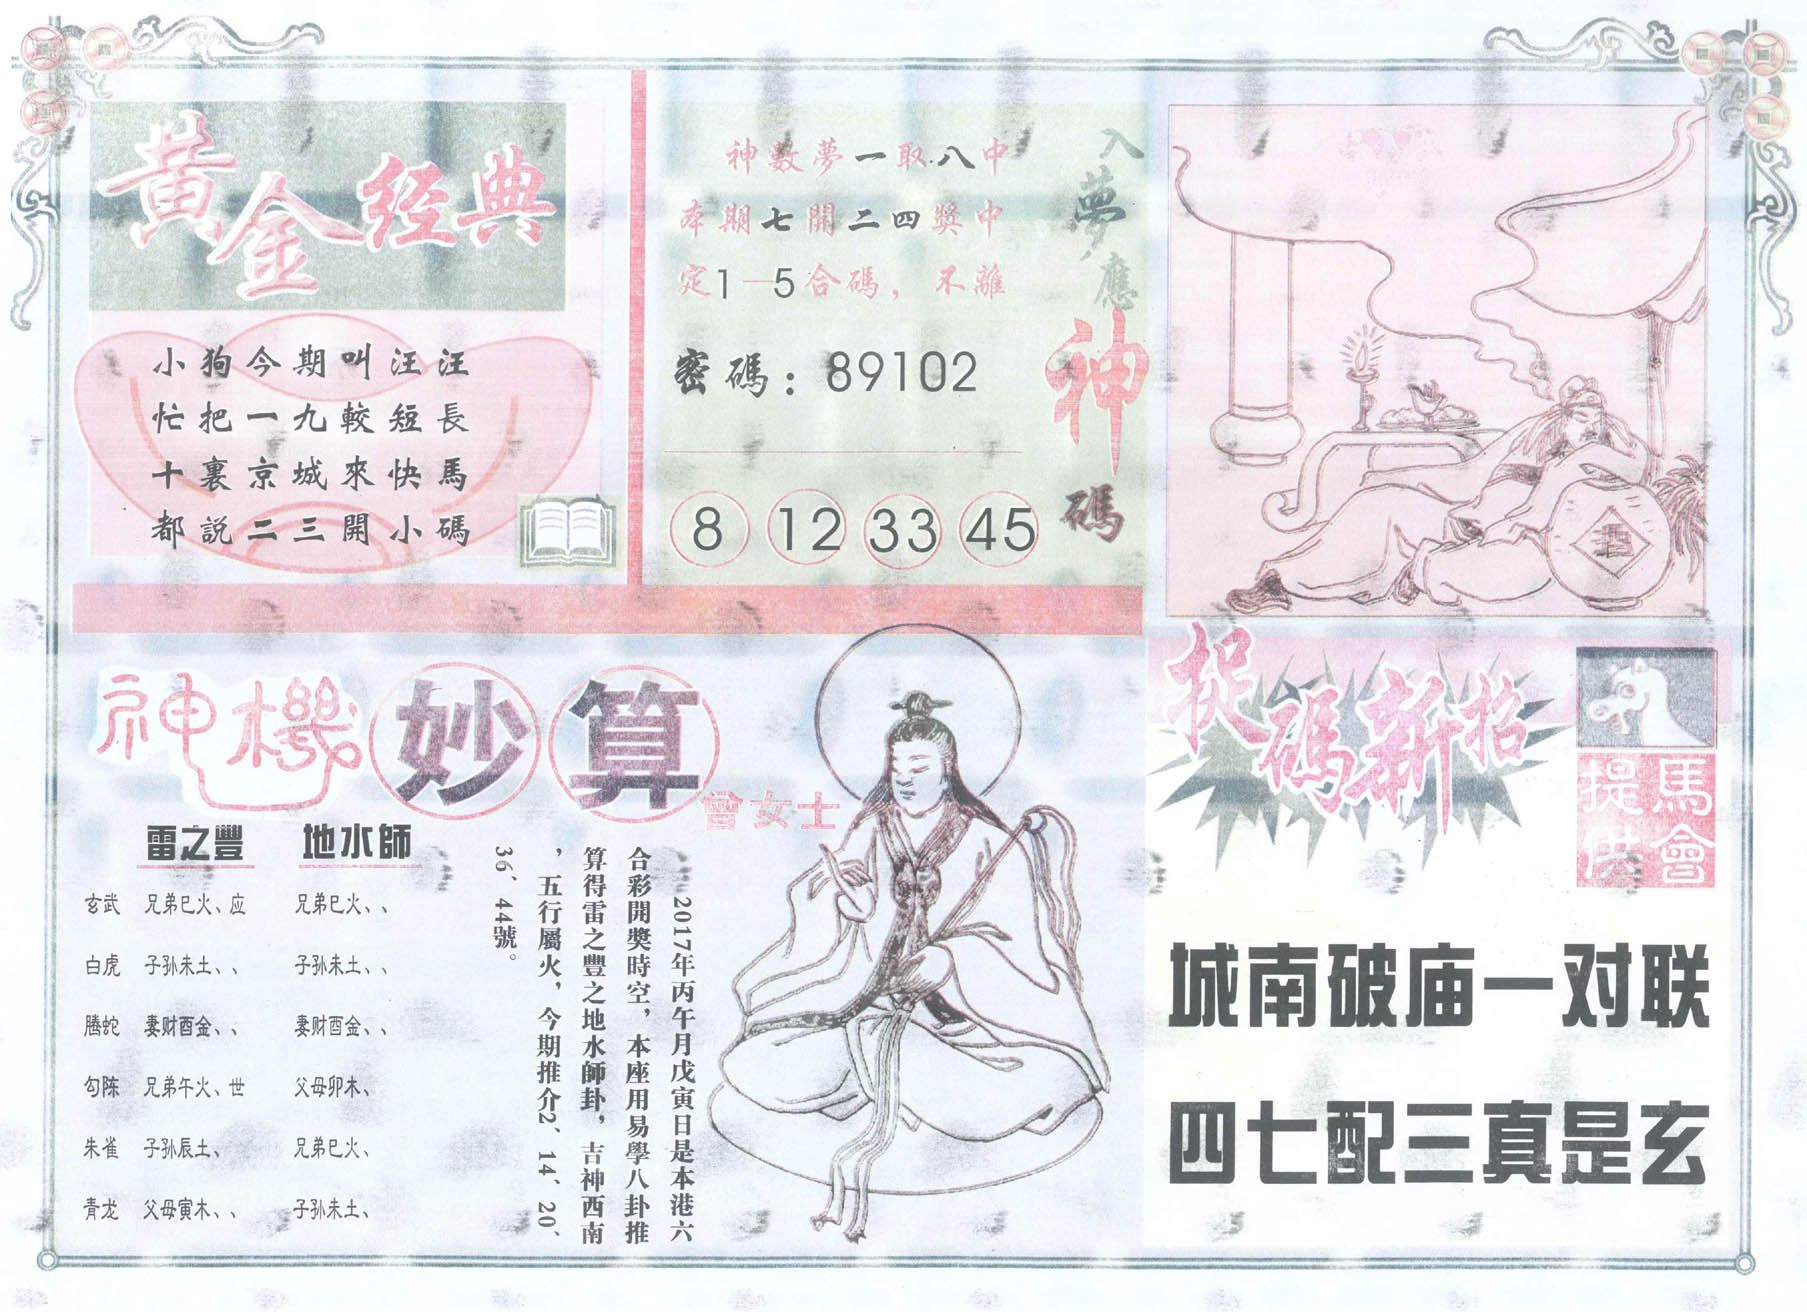 黃金经典
小狗今期叫汪汪
忙把一九較短長
十裏京城來快馬
都説二三開小碼
神數夢一取八中
本期七開二四獎中
定1—5合碼，不離
密碼：89102
8 12 33 45
入夢應神碼
酒
神機妙算
曾女士
雷之豐 地水師
玄武 兄弟巳火、应 兄弟巳火、、
白虎 子孙未土、、 子孙未土、、
騰蛇 妻财酉金、、 妻财酉金、、
勾陈 兄弟午火、世 父母卯木、
朱雀 子孙辰土、 兄弟巳火、
青龙 父母寅木、、 子孙未土、
2017年丙午月戊寅日是本港六
合彩開獎時空，本座用易學八卦推
算得雷之豐之地水師卦，吉神西南
，五行屬火，今期推介2、14、20、
36、44號。
捉碼新招
馬會提供
城南破庙一对联
四七配三真是玄